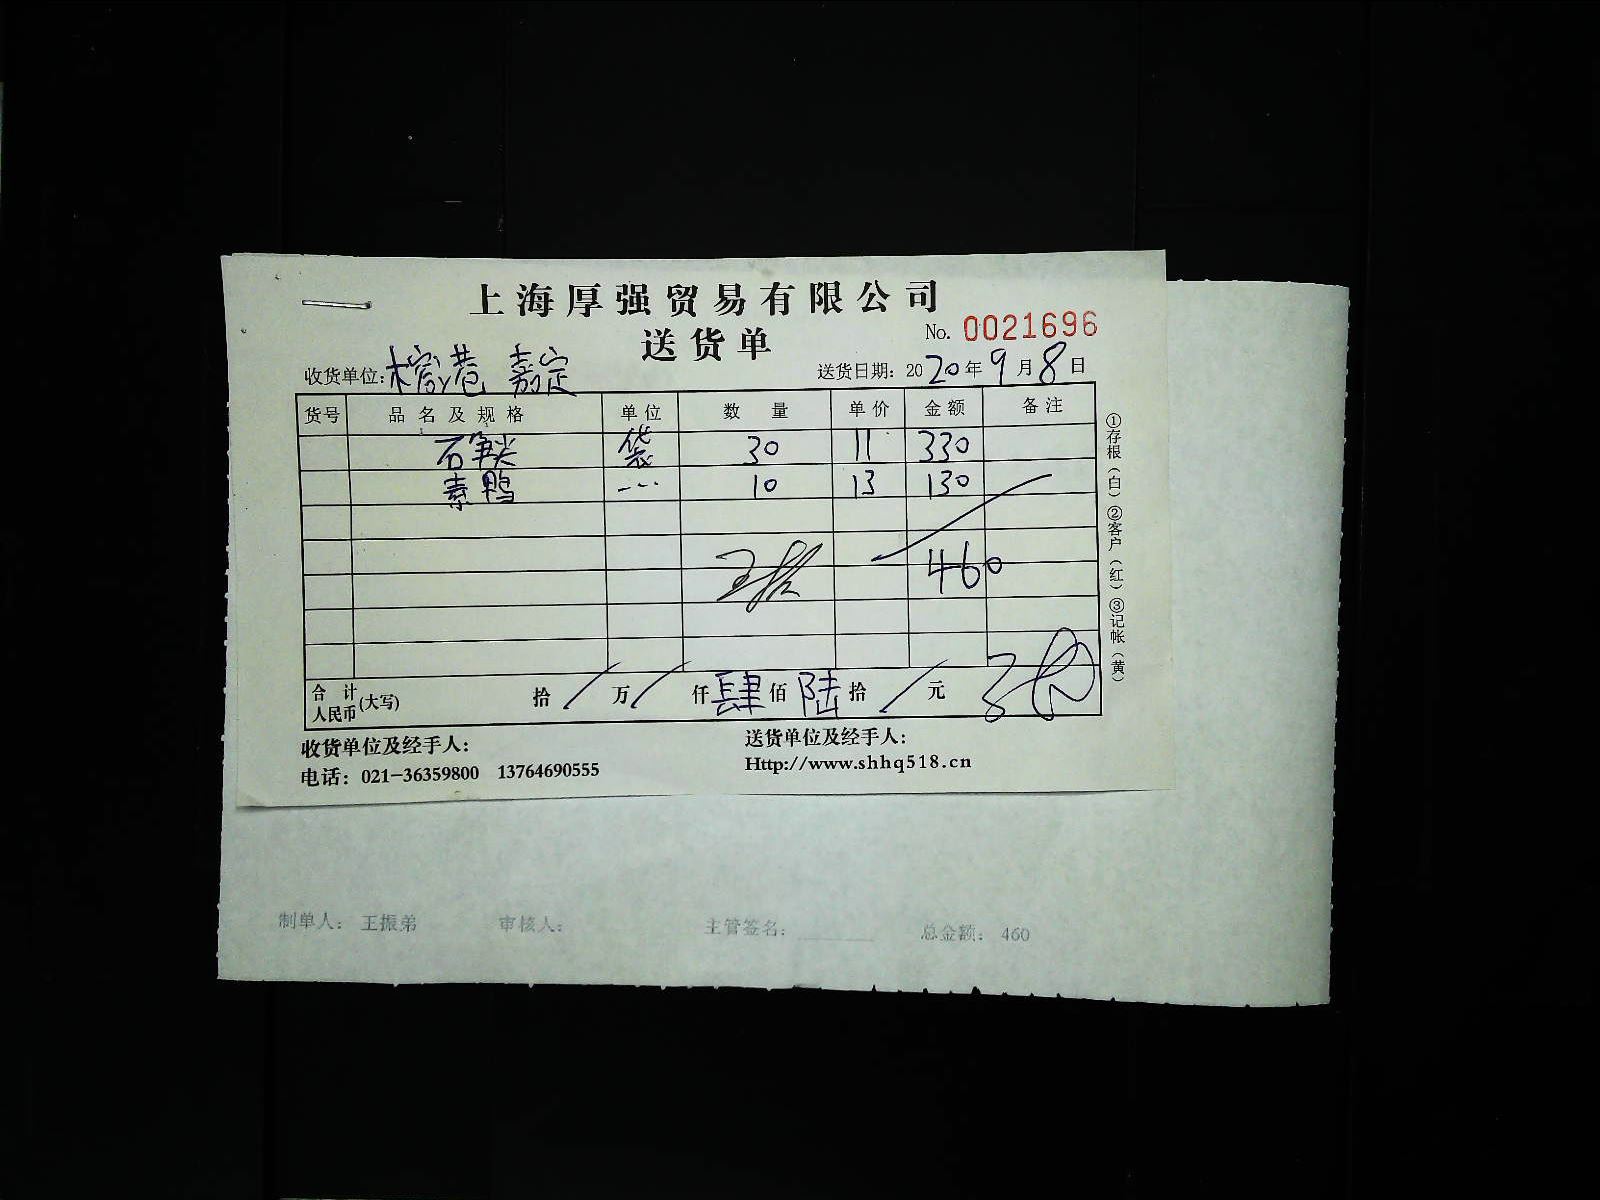 上海厚强贸易有限公司
送货单
No. 0021696
收货单位:榕港 嘉定
送货日期: 2020年9月8日
货号 品名及规格 单位 数量 单价 金额 备注
石笋尖 袋 30 11 330
素鸭 --- 10 13 130
460
合计人民币(大写) 拾/万/仟肆佰陆拾/元
①存根(白)②客户(红)③记帐(黄)
收货单位及经手人:
送货单位及经手人:
电话: 021-36359800 13764690555
Http://www.shhq518.cn
制单人: 王振弟 审核人: 主管签名: 总金额: 460